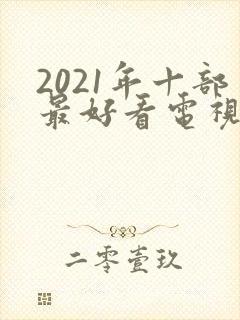 2021年十部
最好看電視
二零壹玖